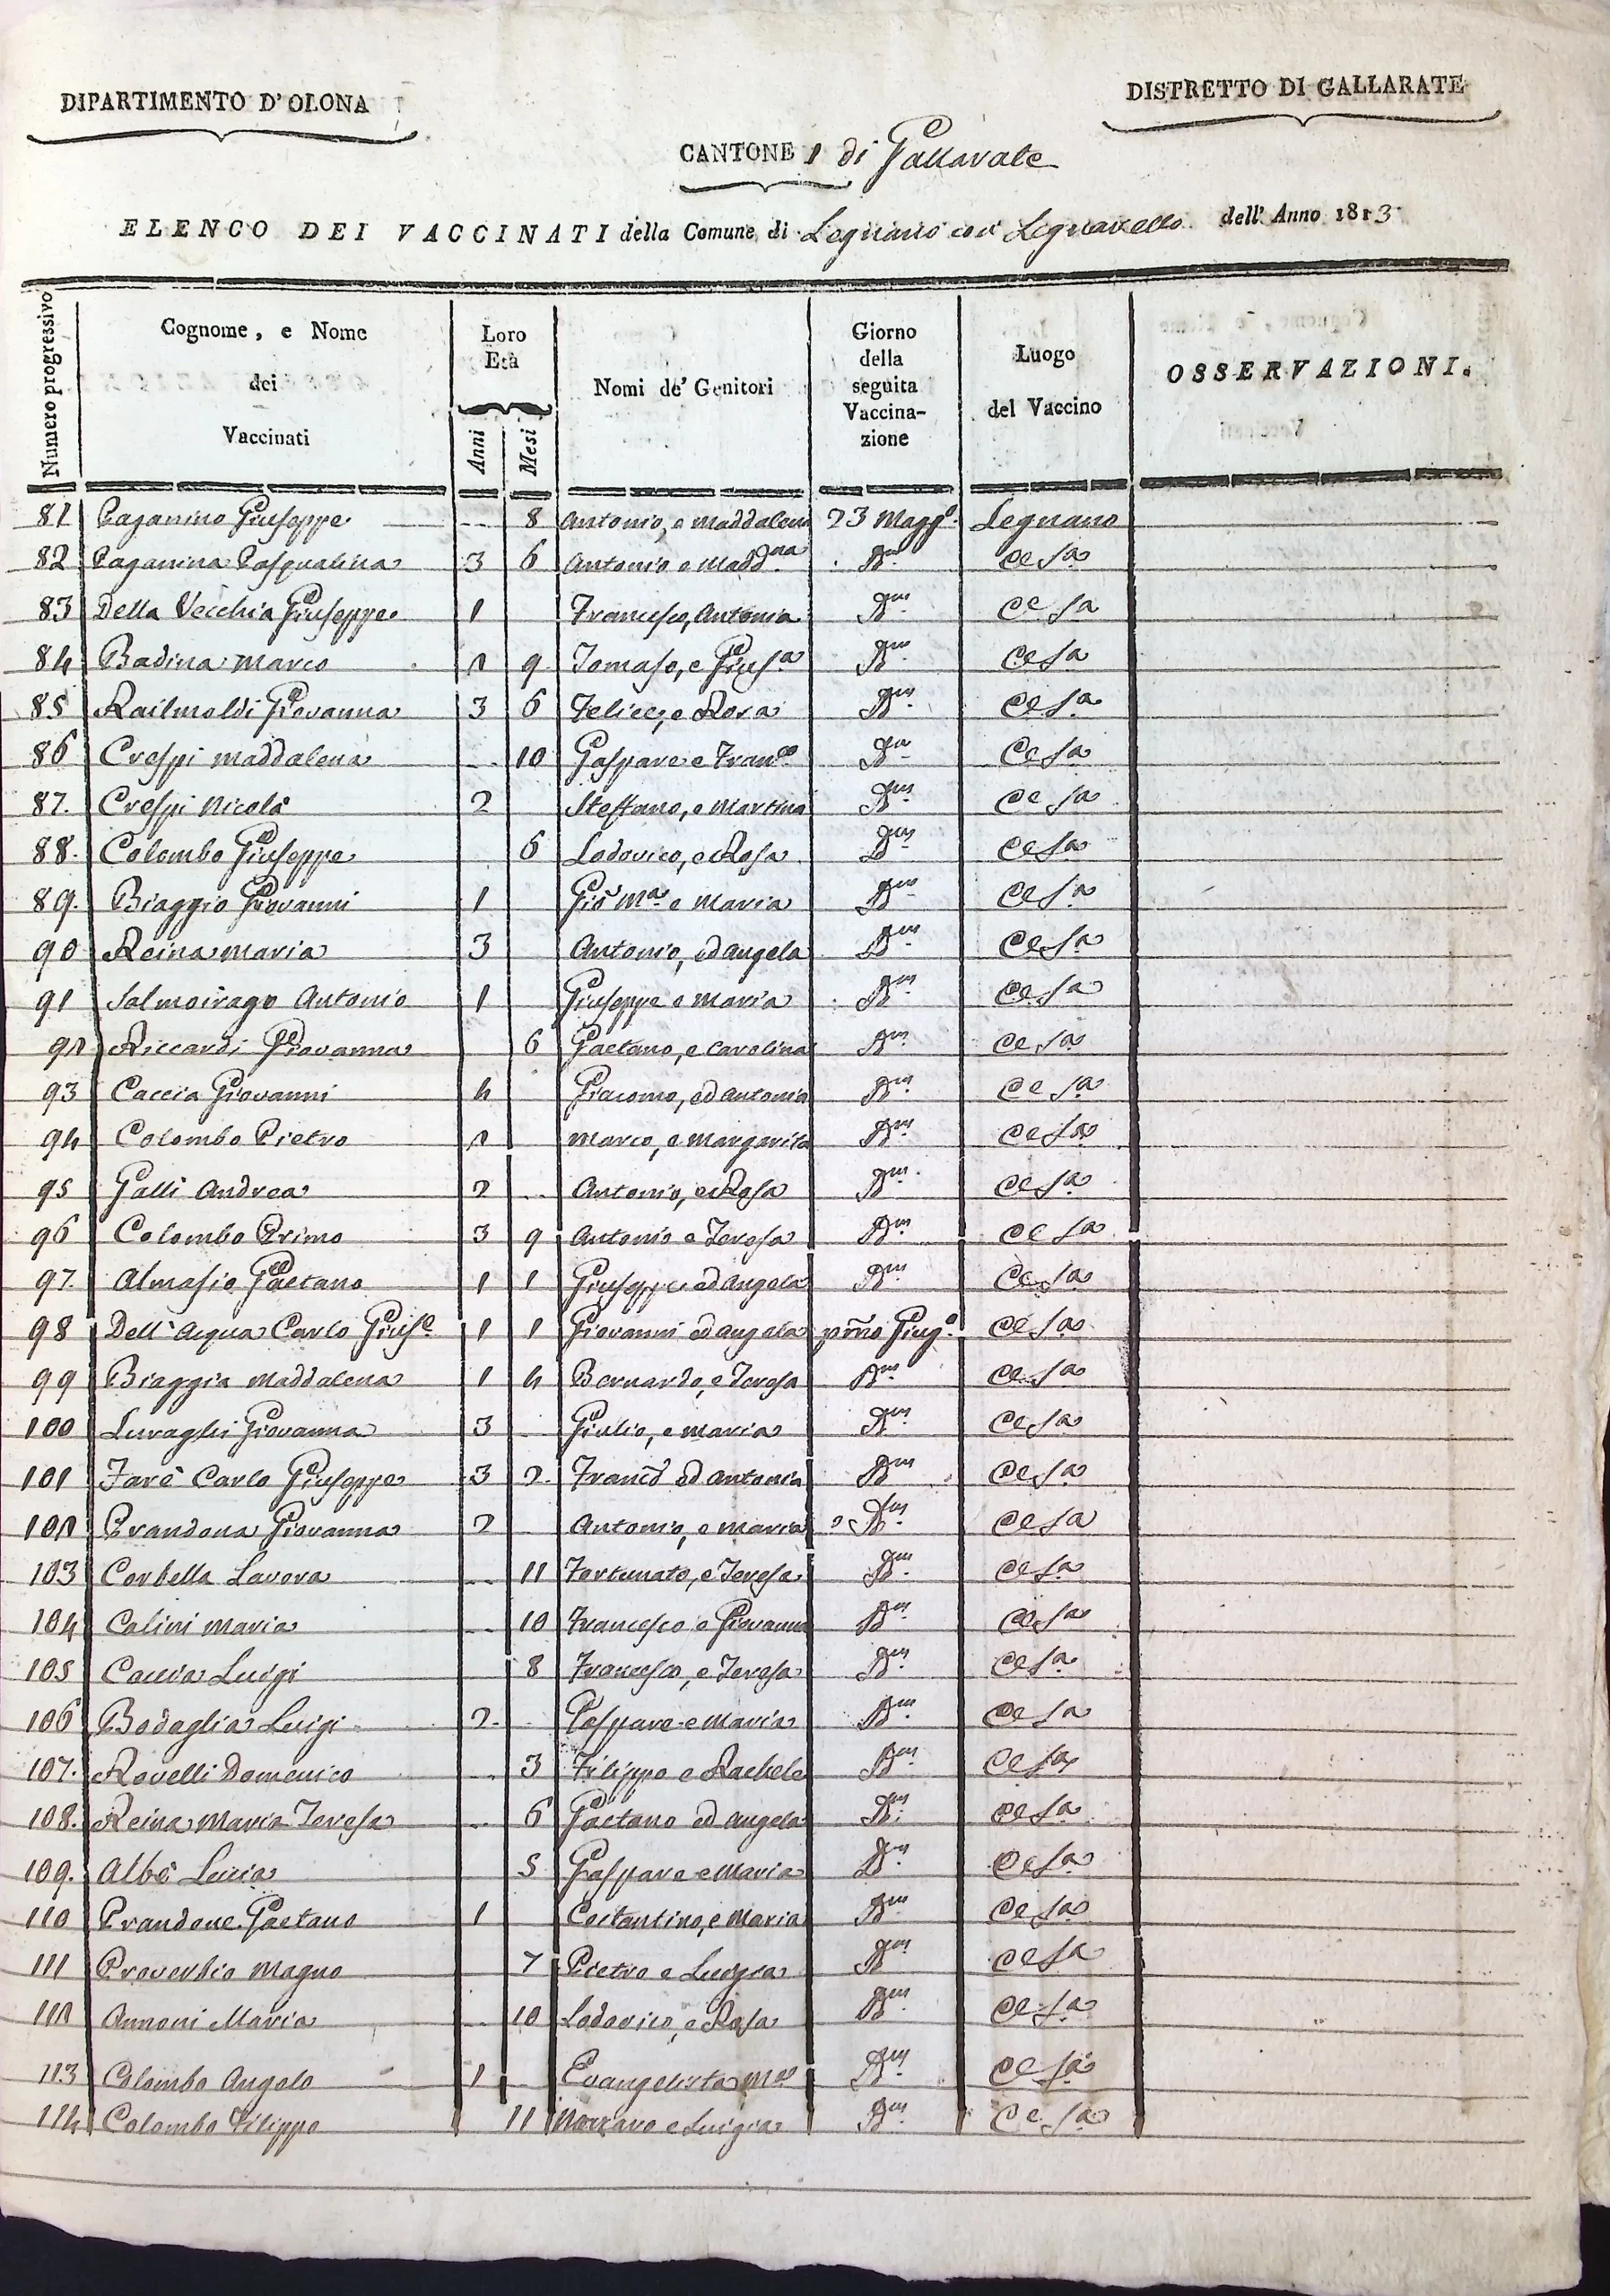 DIPARTIMENTO D'OLONA
DISTRETTO DI GALLARATE
CANTONE 1 di Gallarate
ELENCO DEI VACCINATI della Comune di Legnano con Legnarello dell' Anno 1813
Numero progressivo
Cognome, e Nome dei Vaccinati
Loro Età
Anni
Mesi
Nomi de' Genitori
Giorno della seguita Vaccina-zione
Luogo del Vaccino
OSSERVAZIONI.
81 Paganino Giuseppe -- 8 Antonio, e Maddalena 23 Magg.o Legnano
82 Paganina Pasqualina 3 6 Antonio e Madd.na D.m ce Sa
83 Della Vecchia Giuseppe 1 Francesco, Antonia D.m ce Sa
84 Badina Marco 2 9 Tomaso, e Gius.a D.m ce Sa
85 Railmoldi Giovanna 3 6 Felice, e Rosa D.m ce Sa
86 Crespi Maddalena -- 10 Gaspare e Fran.ca D.m ce Sa
87. Crespi Nicola 2 Steffano, e Martina D.m ce Sa
88. Colombo Giuseppe 6 Lodovico, e Rosa D.m ce Sa
89. Biaggio Giovanni 1 Gio M.a e Maria D.m ce Sa
90 Reina Maria 3 Antonio, ed Angela D.m ce Sa
91 Salmoirago Antonio 1 Giuseppe e Maria D.m ce Sa
92 Riccardi Giovanna 6 Gaetano, e Carolina D.m ce Sa
93 Caccia Giovanni 4 Giacomo, ed Antonia D.m ce Sa
94 Colombo Pietro 2 Marco, e Margarita D.m ce Sa
95 Galli Andrea 2 -- Antonio, e Rosa D.m ce Sa
96 Colombo Primo 3 9 Antonio e Teresa D.m ce Sa
97. Almasio Gaetano 1 1 Giuseppe ed Angela D.m ce Sa
98 Dell'Acqua Carlo Gius.e 1 1 Giovanni ed Angela pm̃o Giug.o ce Sa
99 Biaggia Maddalena 1 4 Bernardo, e Teresa D.m ce Sa
100 Luraghi Giovanna 3 Giulio, e Maria D.m ce Sa
101 Farè Carlo Giuseppe 3 2 Franc.o ed Antonia D.m ce Sa
102 Prandona Giovanna 2 Antonio, e Maria D.m ce Sa
103 Corbella Lavora -- 11 Fortunato, e Teresa D.m ce Sa
104 Calini Maria -- 10 Francesco e Giovanna D.m ce Sa
105 Caccia Luigi 8 Francesco, e Teresa D.m ce Sa
106 Bodaglia Luigi 2 Gaspare e Maria D.m ce Sa
107. Rovelli Domenico -- 3 Filippo e Rachele D.m ce Sa
108. Reina Maria Teresa -- 6 Gaetano ed Angela D.m ce Sa
109. Albè Lucia 5 Gaspare e Maria D.m ce Sa
110 Prandone Gaetano 1 Costantino, e Maria D.m ce Sa
111 Proverbio Magno 7 Pietro e Luigia D.m ce Sa
112 Annoni Maria -- 10 Lodovico, e Rosa D.m ce Sa
113 Colombo Angolo 1 Evangelista D.m ce Sa
114 Colombo Filippo 11 e Luigia D.m ce Sa